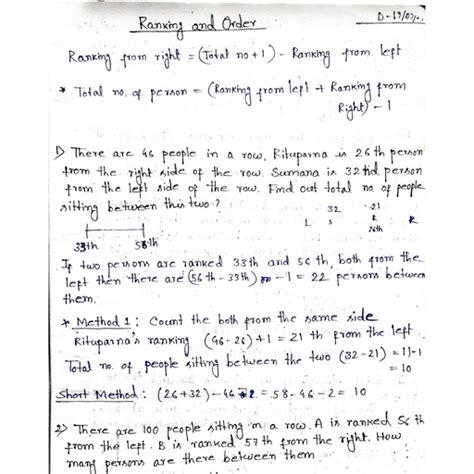 Ranking and Order
D-19/03/
Ranking from right = (Total no + 1) - Ranking from left
* Total no. of person = (Ranking from left + Ranking from
Right) - 1
1) There are 46 people in a row. Rituparna is 26 th person
from the right side of the row. Sumana is 32nd person
from the left side of the row. Find out total no of people
sitting between this two?
32 21
L S R R
26th
33th 56th
If two persons are ranked 33th and 56 th, both from the
left then there are (56 th - 33th) - 1 = 22 persons between
them.
* Method 1: Count the both from the same side
Rituparna's ranking (46-26)+1 = 21 th from the left.
Total no. of people sitting between the two (32-21) = 11-1
= 10
Short Method: (26+32) - 46 - 2 = 58-46-2 = 10
2) There are 100 people sitting in a row. A is ranked 56 th
from the left. B is ranked 57 th from the right. How
many persons are there between them.